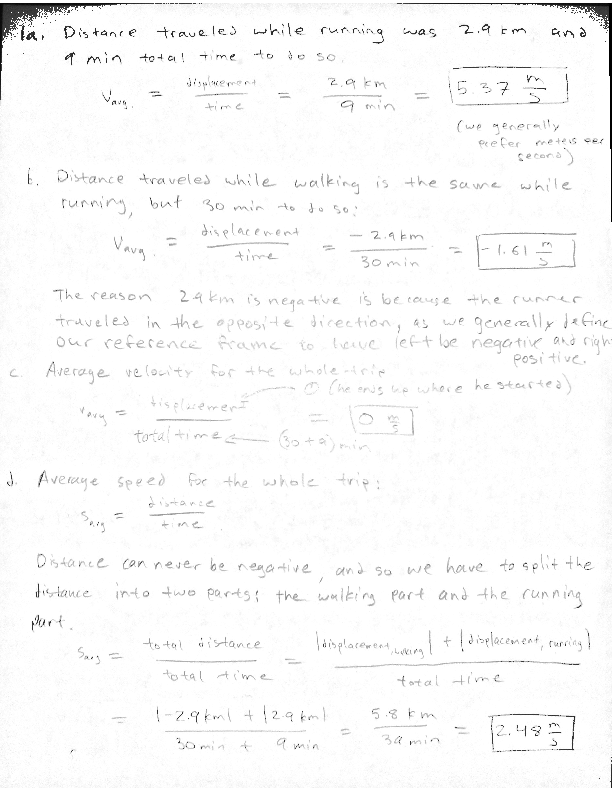 1a. Distance traveled while running was 2.9 km and
9 min total time to do so
Vavg. = displacement / time = 2.9 km / 9 min = 5.37 m/s
(we generally
prefer meters per
second)
b. Distance traveled while walking is the same while
running, but 30 min to do so:
Vavg. = displacement / time = -2.9 km / 30 min = -1.61 m/s
The reason 2.9 km is negative is because the runner
traveled in the opposite direction, as we generally define
our reference frame to have left be negative and right
positive.
c. Average velocity for the whole trip
0 (he ends up where he started)
Vavg = displacement / total time = 0 m/s
(30 + 9) min
d. Average speed for the whole trip:
Savg = distance / time
Distance can never be negative, and so we have to split the
distance into two parts: the walking part and the running
part.
Savg = total distance / total time = |displacement, walking| + |displacement, running| / total time
= |-2.9 km| + |2.9 km| / 30 min + 9 min = 5.8 km / 39 min = 2.48 m/s